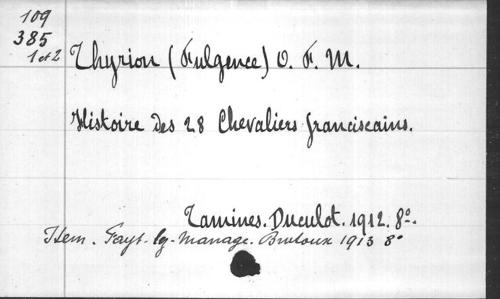 109
385
1 et 2
Thyrion (Fulgence) O. F. M.
Histoire des 28 Chevaliers franciscains.
Tamines. Duculot. 1912. 8°.
Item. Fayt-lg-Manage. 1913 8°